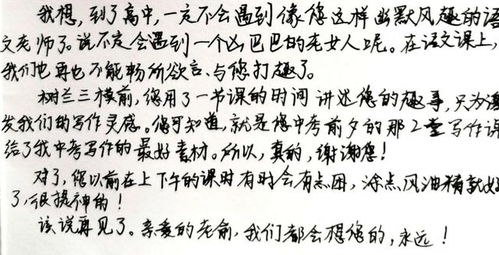 我想,到了高中,一定不会遇到像您这样幽默风趣的语
文老师了。说不定会遇到一个凶巴巴的老女人呢。在语文课上,
我们也再也不能畅所欲言、与您打趣了。
树兰三模前,您用了一节课的时间讲述您的趣事,只为激
发我们的写作灵感。您可知道,就是您中考前夕的那2堂写作课
给了我中考写作的最好素材。所以,真的,谢谢您!
对了,您以前在上下午的课时有时会有点困,涂点风油精就好
了,很提神的!
该说再见了。亲爱的老俞,我们都会想您的,永远!